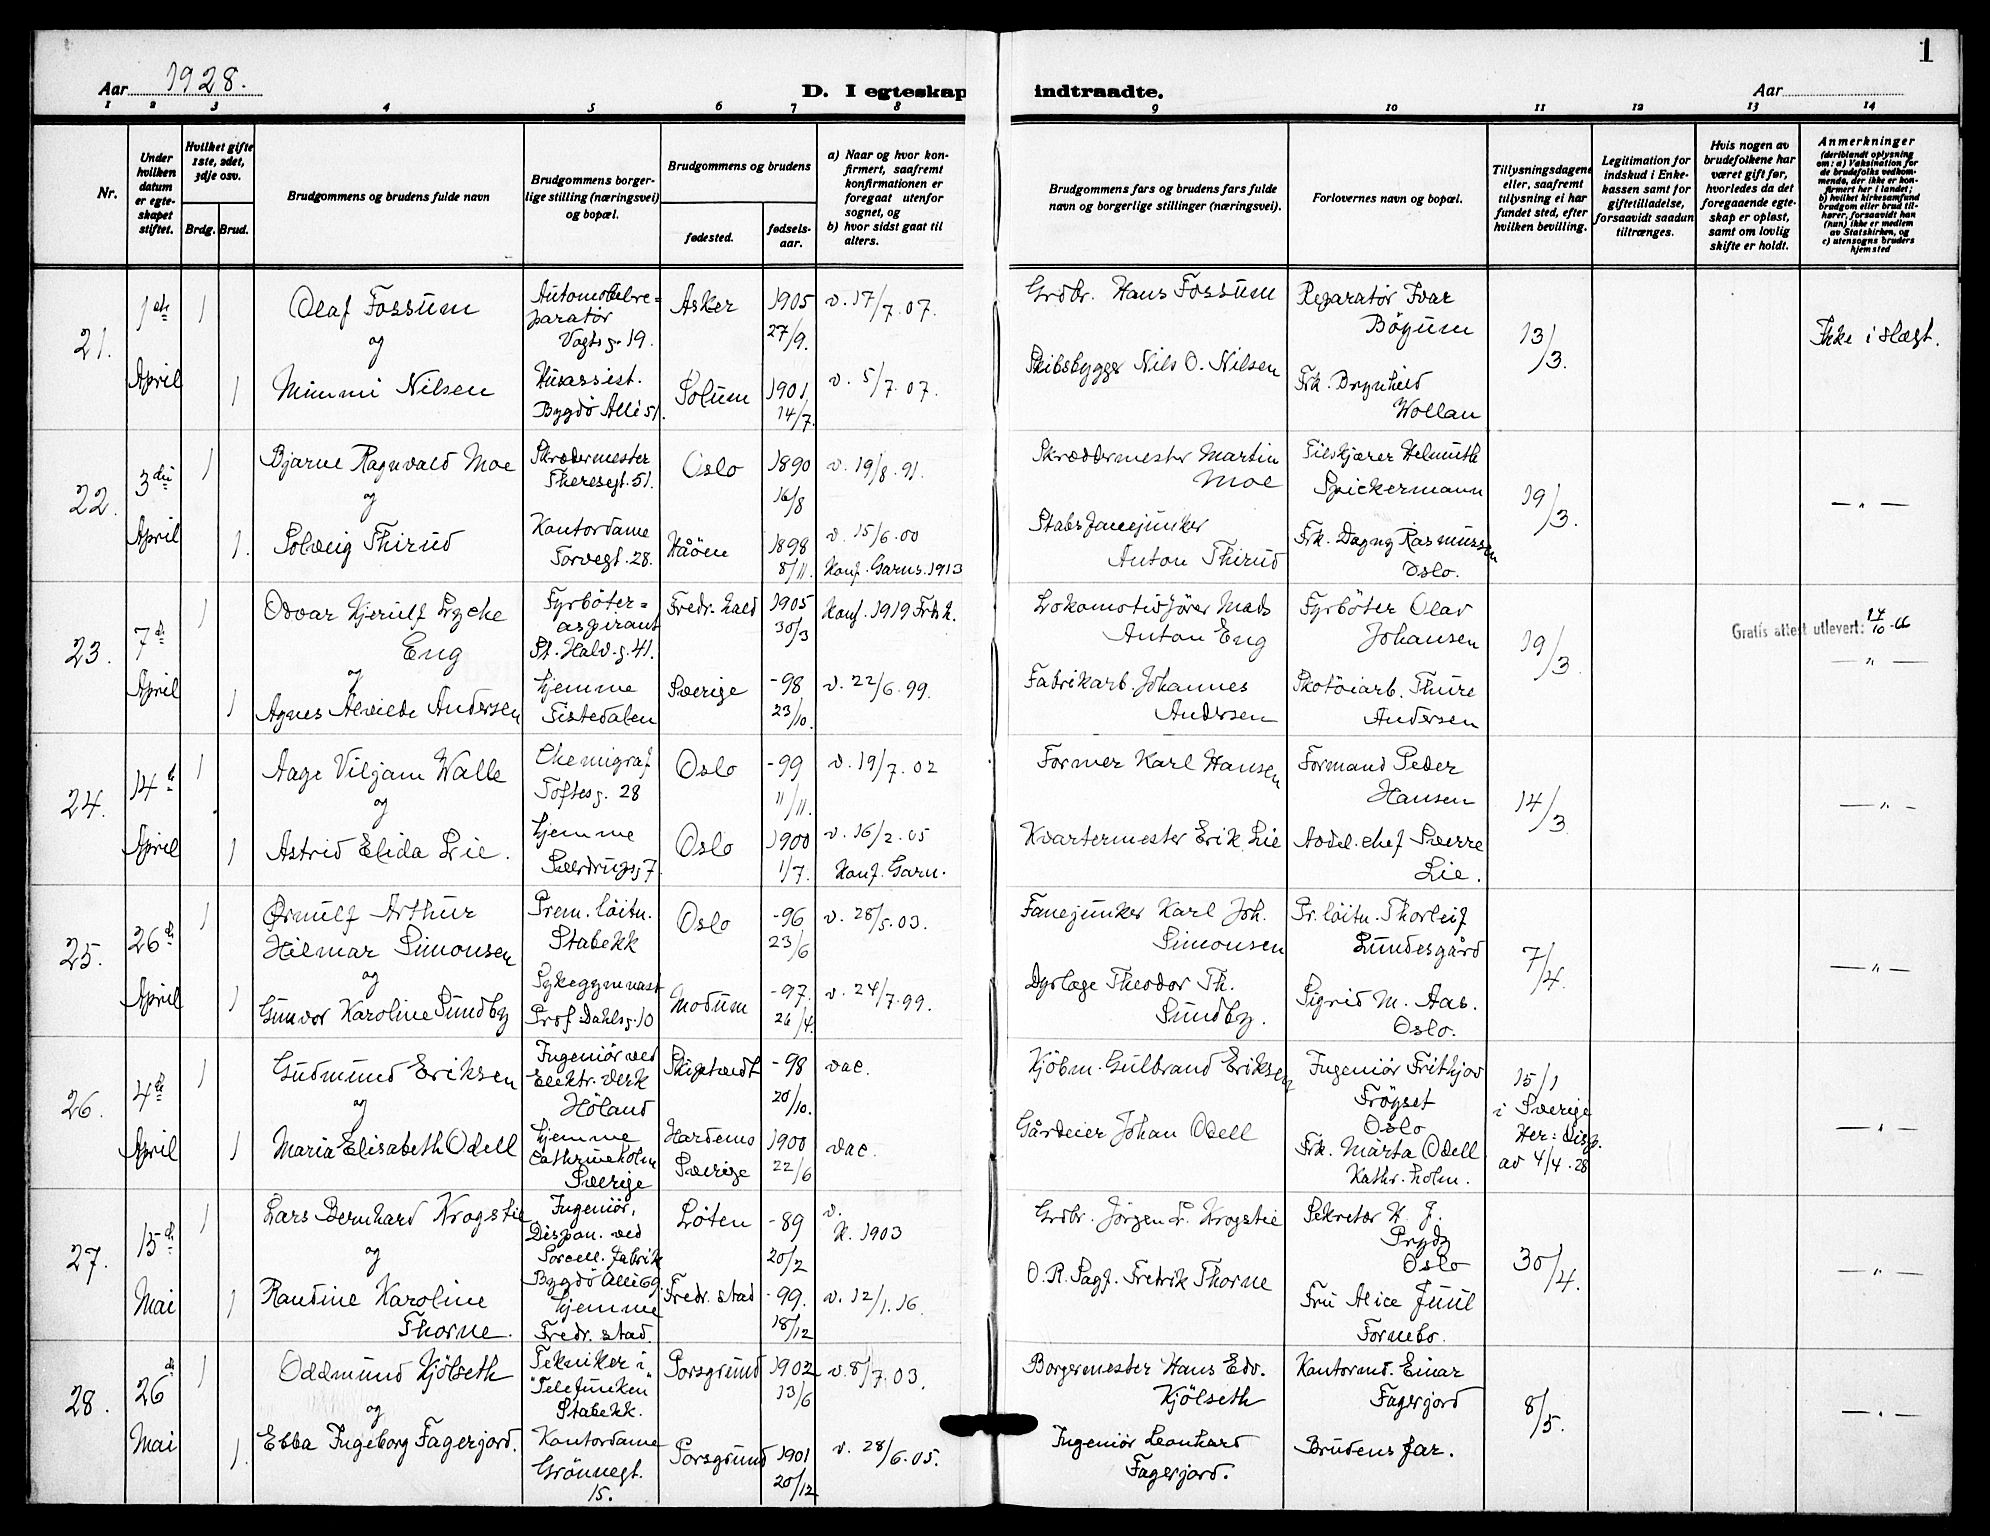 1
Aar 1928.
D. I egteskap indtraadte.
Aar
1 2 3 4 5 6 7 8 9 10 11 12 13 14
Nr.
Under hvilken datum er egteskapet stiftet.
Hvilket gifte 1ste, 2det, 3dje osv.
Brdg. Brud.
Brudgommens og brudens fulde navn
Brudgommens borgerlige stilling (næringsvei) og bopæl.
Brudgommens og brudens
fødested.
fødselsaar.
a) Naar og hvor konfirmert, saafremt konfirmationen er foregaat utenfor sognet, og
b) hvor sidst gaat til alters.
Brudgommens fars og brudens fars fulde navn og borgerlige stillinger (næringsvei).
Forlovernes navn og bopæl.
Tillysningsdagene eller, saafremt tillysning ei har fundet sted, efter hvilken bevilling.
Legitimation for indskud i Enkekassen samt for giftetilladelse, forsaavidt saadan tiltrænges.
Hvis nogen av brudefolkene har været gift før, hvorledes da det foregaaende egteskap er opløst, samt om lovlig skifte er holdt.
Anmerkninger
(deriblandt oplysning om: a) Vaksination for de brudefolks vedkommende, der ikke er konfirmert her i landet;
b) hvilket kirkesamfund brudgom eller brud tilhører, forsaavidt han (hun) ikke er medlem av Statskirken, og
c) utensogns bruders hjemsted
21.
1ste April
1
Olaf Fossum
og
Automobilreparatør
Vogtsg. 19.
Asker
1905
27/9.
v. 17/7.07.
Grdbr. Hans Fossum
Reparatør Ivar
Bögum
13/3.
Ikke i slegt.
1
Mimmi Nilsen
Husassist.
Bygdö Allé 51.
Solum
1901
14/7.
v. 5/7.07.
Skibsbygger Nils O. Nilsen
Frk. Brynhild
Wollan
22.
3die April
1
Bjarne Ragnvald Moe
og
Skrædermester
Theresegt. 51.
Oslo
1890
16/8
v. 19/8.91.
Skræddermester Martin
Moe
Filskjærer Helmuth
Spickermann
19/3.
— " —
1.
Solveig Thirud
Kontordame
Torvegt. 28.
Håöen
1898
8/11.
v. 15/6.00
Konf. Garns. 1913
Stabsfanejunker
Anton Thirud
Frk. Dagny Rasmussen
Oslo.
23.
7de April
1
Odvar Kjerulf Lycke
Eng
og
Fyrböter=
aspirant
St. Halv.g. 41.
Fredr.hald
1905
30/3
Konf. 1919 Fr.h.
Lokomotivförer Mads
Anton Eng
Fyrböter Olav
Johansen
19/3
Gratis attest utlevert: 14/10-66
— " —
1
Agnes Alvilde Andersen
hjemme
Tistedalen
Sverige
-98
23/10.
v. 22/6.99.
Fabrikarb. Johannes
Andersen
Skotöiarb. Thure
Andersen
24.
14de April
1
Aage Viljam Walle
og
Chemigraf
Toftesg. 28
Oslo
-99
11/11.
v. 19/7.02
Former Karl Hansen
Formand Peder
Hansen
14/3
— " —
1
Astrid Elida Lie.
hjemme
Sverdrupsg 7
Oslo
1900
1/7.
v. 16/2.05
Konf. Garn.
Kvartermester Erik Lie
Avdel.chef Sverre
Lie.
25.
26de April
1
Ørnulf Arthur
Hilmar Simonsen
og
Prem.löitn.
Stabekk
Oslo
-96
23/6
v. 28/5.03.
Fanejunker Karl Joh.
Simonsen
Pr.löitn. Thorleif
Lundesgård
7/4.
— " —
1
Gunvor Karoline Sundby
Sykegymnast
Prof Dahlsg. 10
Modum
-97.
26/4.
v. 24/7.99.
Dyrlæge Theodor Th.
Sundby.
Sigrid M. Aas.
Oslo.
26.
4de April
1
Gudmund Eriksen
og
Ingeniör ved
Elektr. verk
Höland
Skiptvedt
-98
20/10.
vac.
Kjöbm. Gulbrand Eriksen
Ingeniör Frithjov
Fröyset
Oslo
15/1
i Sverige
Her: disp.
av 4/4.28
— " —
1
Maria Elisabeth Odell
hjemme
Cathrineholm
Sverige
Hardemo
Sverige
1900
22/6
vac.
Gårdeier Johan Odell
Frk. Märta Odell
Kathr.holm.
27.
15de Mai
1
Lars Bernhard Krogstie
og
Ingeniör,
Dispon. ved
Porcell.fabrik
Bygdö Allé 69
Löten
-89
20/2
v.
K. 1903
Grdbr. Jörgen L. Krogstie
Sekretær H. J.
Prydz
Oslo
30/4.
— " —
1
Randine Karoline
Thorne.
hjemme
Fredr.stad.
Fredr.stad
-99.
18/12
v. 12/1.16.
O.R.Sagf. Fredrik Thorne
Fru Alice Juul
Fornebo.
28.
26de Mai
1
Oddmund Kjölseth
og
Tekniker i
"Telefunken"
Stabekk.
Porsgrund
1902
13/6
v. 8/7.03.
Borgermester Hans Edv.
Kjölseth
Kontormd. Einar
Fagerjord
8/5.
— " —
1.
Ebba Ingeborg Fagerjord.
Kontordame
Grönnegt.
15.
Porsgrund
1901
20/12
v. 28/6.05.
Ingeniör Leonhard
Fagerjord.
Brudens far.